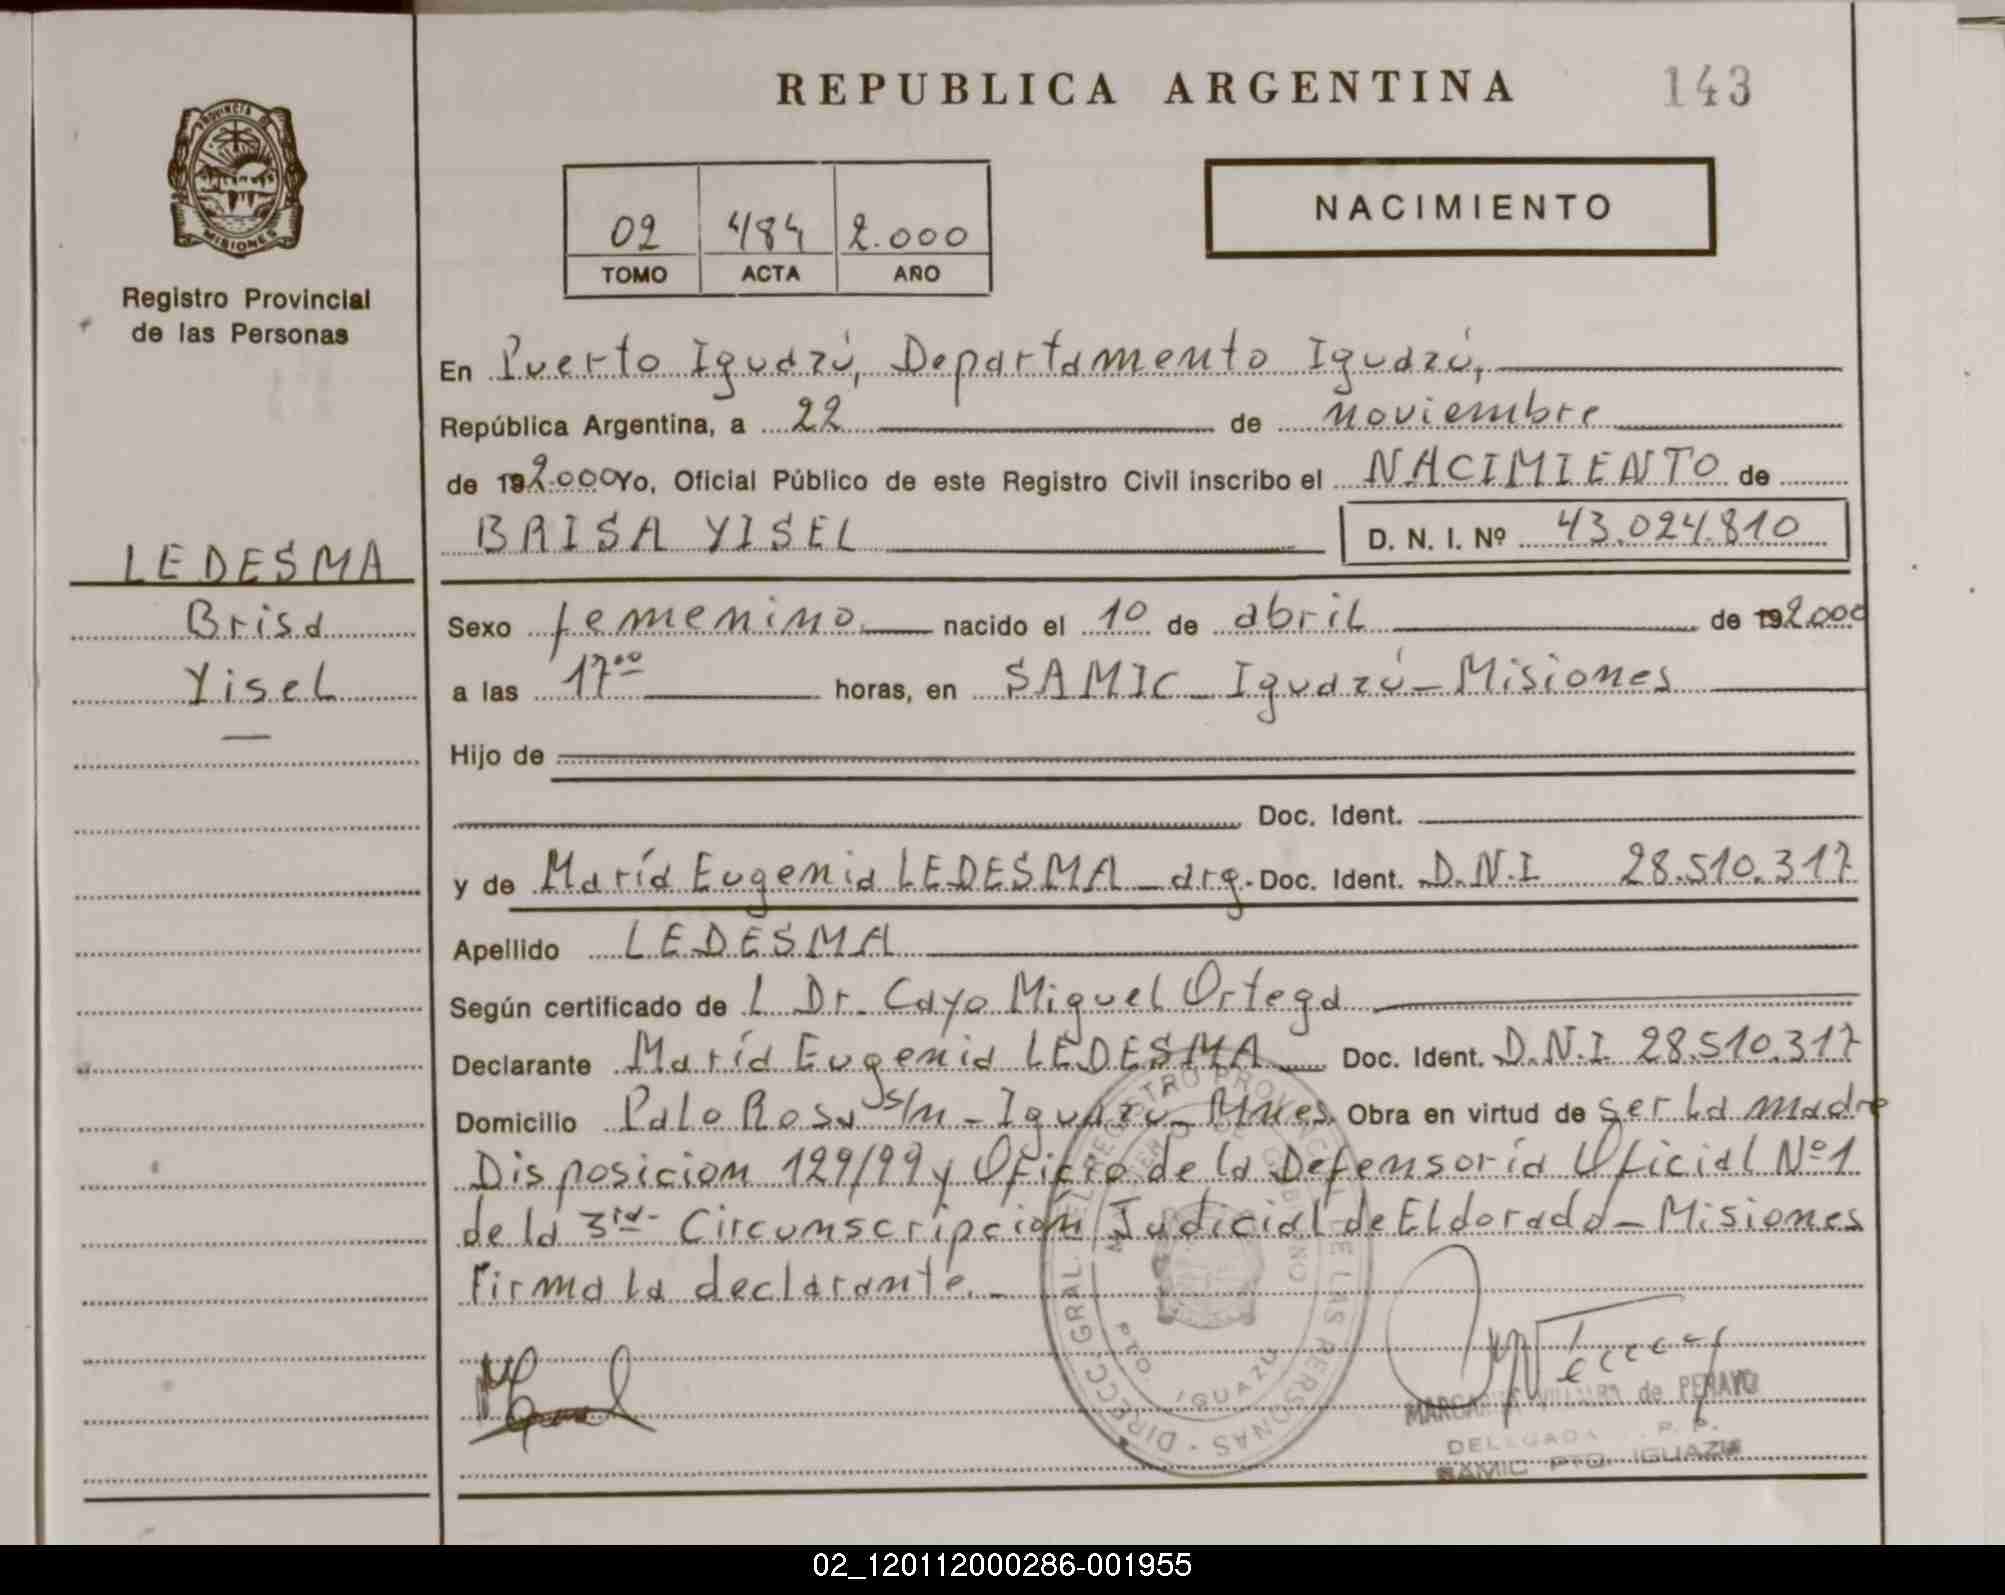 REPUBLICA ARGENTINA 143
PROVINCIA DE
MISIONES
Registro Provincial
de las Personas
02 484 2.000
TOMO ACTA AÑO
NACIMIENTO
En Puerto Iguazú, Departamento Iguazú,
República Argentina, a 22 de noviembre
de 192.000 Yo, Oficial Público de este Registro Civil inscribo el NACIMIENTO de
BRISA YISEL D. N. I. Nº 43.024.810
LEDESMA
Brisa
Yisel
Sexo femenino nacido el 10 de abril de 192.000
a las 17ºº horas, en SAMIC - Iguazú - Misiones
Hijo de
Doc. Ident.
y de María Eugenia LEDESMA - arg. Doc. Ident. D.N.I 28.510.317
Apellido LEDESMA
Según certificado de L Dr. Cayo Miguel Ortega
Declarante María Eugenia LEDESMA Doc. Ident. D.N.I. 28.510.317
Domicilio Palo Rosa s/n - Iguazú - Mnes. Obra en virtud de ser La madre
Disposicion 129/99 y Oficio de la Defensoría Oficial Nº 1
de la 3ra. Circunscripción Judicial de Eldorado - Misiones
Firma la declarante. -
DIRECC. GRAL. DEL REGISTRO PROVINCIAL DE LAS PERSONAS
PTO. IGUAZU
MARGARITA de PENAYO
DELEGADA R. P.
SAMIC PTO. IGUAZU
02_120112000286-001955